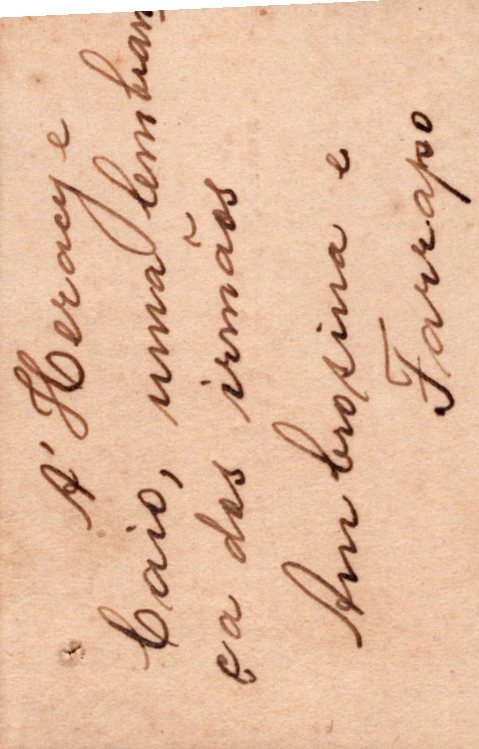 A' Heracy e
Caio, uma lembran
ça dos irmãos
Ambrosina e
Farrapo